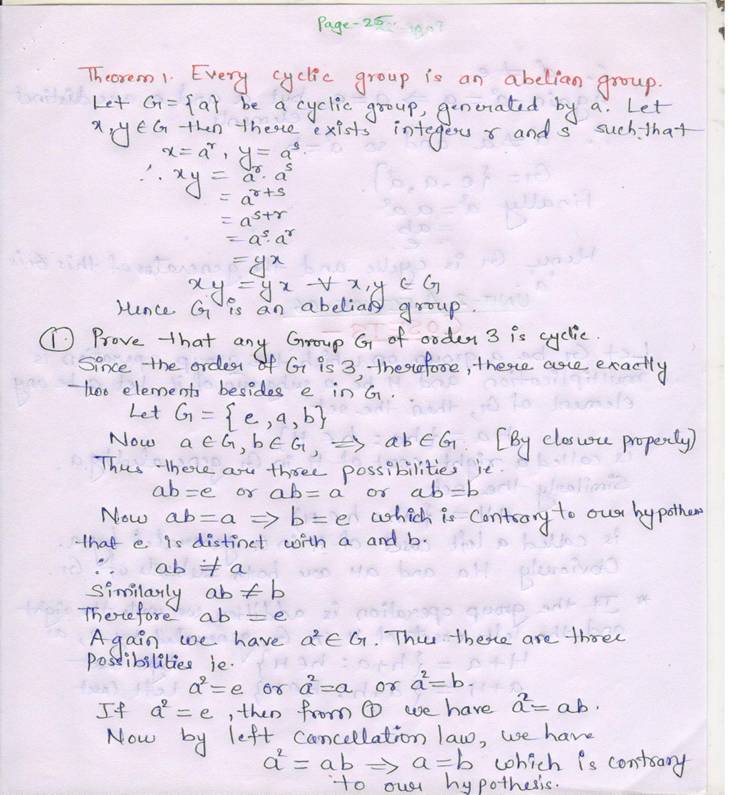 Page-25
Theorem 1. Every cyclic group is an abelian group.
Let G = {a} be a cyclic group, generated by a. Let
x, y ∈ G then there exists integers r and s such that
x = a^r, y = a^s.
∴ xy = a^r . a^s
= a^{r+s}
= a^{s+r}
= a^s . a^r
= yx
xy = yx ∀ x, y ∈ G
Hence G is an abelian group.
① Prove that any Group G of order 3 is cyclic.
Since the order of G is 3, therefore, there are exactly
two elements besides e in G.
Let G = {e, a, b}
Now a ∈ G, b ∈ G, ⟹ ab ∈ G. [By closure property)
Thus there are three possibilities ie.
ab = e or ab = a or ab = b
Now ab = a ⟹ b = e which is contrary to our hypothes
that e is distinct with a and b.
∴ ab ≠ a
Similarly ab ≠ b
Therefore ab = e
Again we have a² ∈ G. Thus there are three
Possibilities ie.
a² = e or a² = a or a² = b.
If a² = e, then from ① we have a² = ab.
Now by left cancellation law, we have
a² = ab ⟹ a = b which is contrary
to our hypothesis.